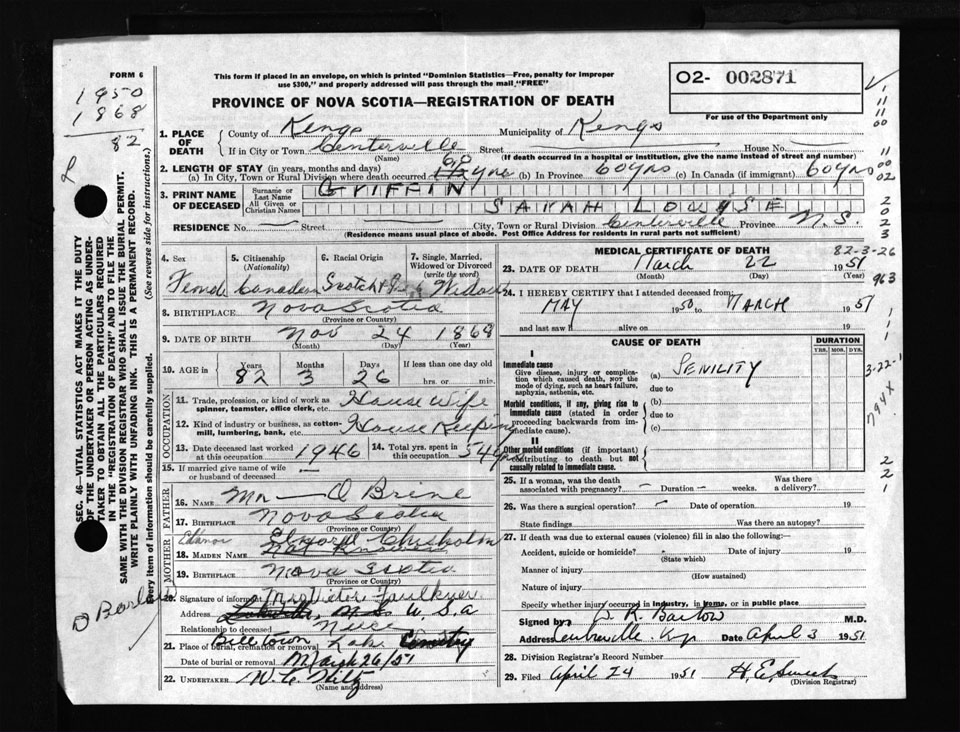 FORM 6
This form if placed in an envelope, on which is printed "Dominion Statistics—Free, penalty for improper
use $300," and properly addressed will pass through the mail "FREE"
O2- 002871
For use of the Department only
1950
1868
82
PROVINCE OF NOVA SCOTIA—REGISTRATION OF DEATH
1. PLACE OF DEATH
County of Kings Municipality of Kings
If in City or Town Centerville Street House No.
(Name) (If death occurred in a hospital or institution, give the name instead of street and number)
2. LENGTH OF STAY (in years, months and days)
(a) In City, Town or Rural Division where death occurred 60 yrs (b) In Province 60 yrs (c) In Canada (if immigrant) 60 yrs
3. PRINT NAME OF DECEASED
Surname or Last Name GRIFFIN
All Given or Christian Names SARAH LOUISE
RESIDENCE No. Street City, Town or Rural Division Centerville Province N.S.
(Residence means usual place of abode. Post Office Address for residents in rural parts not sufficient)
4. Sex 5. Citizenship (Nationality) 6. Racial Origin 7. Single, Married, Widowed or Divorced (write the word)
Female Canadian Scotch Widow
8. BIRTHPLACE Nova Scotia
(Province or Country)
9. DATE OF BIRTH Nov 24 1868
(Month) (Day) (Year)
10. AGE in Years Months Days If less than one day old
82 3 26 hrs. or min.
OCCUPATION
11. Trade, profession, or kind of work as spinner, teamster, office clerk, etc. House Wife
12. Kind of industry or business, as cotton-mill, lumbering, bank, etc. House Keeping
13. Date deceased last worked at this occupation 1946 14. Total yrs. spent in this occupation 54 yrs
15. If married give name of wife or husband of deceased
FATHER
16. NAME Mr — O Brine
17. BIRTHPLACE Nova Scotia
(Province or Country)
MOTHER
18. MAIDEN NAME Chisholm
Not Known
19. BIRTHPLACE Nova Scotia
(Province or Country)
20. Signature of informant Mrs Victor Faulkner
Address U.S.A
Relationship to deceased Niece
21. Place of burial, cremation or removal Billtown Cemetry
Date of burial or removal March 26/51
22. UNDERTAKER W.C. Hiltz
(Name and address)
MEDICAL CERTIFICATE OF DEATH
82-3-26
23. DATE OF DEATH March 22 1951
(Month) (Day)
963
24. I HEREBY CERTIFY that I attended deceased from:
MAY 1950 to MARCH 1951
and last saw h alive on 19
CAUSE OF DEATH DURATION
YRS. MOS. DYS.
I
Immediate cause
Give disease, injury or complication which caused death, NOT the mode of dying, such as heart failure, asphyxia, asthenia, etc.
(a) SENILITY
due to
Morbid conditions, if any, giving rise to immediate cause (stated in order proceeding backwards from immediate cause).
(b)
due to
(c)
II
Other morbid conditions (if important) contributing to death but not causally related to immediate cause.
3-22-1
794X
25. If a woman, was the death associated with pregnancy? - Duration - weeks. Was there a delivery?
26. Was there a surgical operation? - Date of operation 19
State findings Was there an autopsy?
27. If death was due to external causes (violence) fill in also the following:—
Accident, suicide or homicide? Date of injury 19
(State which)
Manner of injury
(How sustained)
Nature of injury
Specify whether injury occurred in industry, in home, or in public place
Signed by R. Barlow M.D.
Address Centreville Date April 3 1951
28. Division Registrar's Record Number
29. Filed April 24 1951 H.E. Sweet
(Division Registrar)
SEC. 46—VITAL STATISTICS ACT MAKES IT THE DUTY
OF THE UNDERTAKER OR PERSON ACTING AS UNDER-
TAKER TO OBTAIN ALL THE PARTICULARS REQUIRED
IN THE "REGISTRATION OF DEATH" AND TO FILE THE
SAME WITH THE DIVISION REGISTRAR WHO SHALL ISSUE THE BURIAL PERMIT.
WRITE PLAINLY WITH UNFADING INK. THIS IS A PERMANENT RECORD.
Every item of information should be carefully supplied. (See reverse side for instructions.)